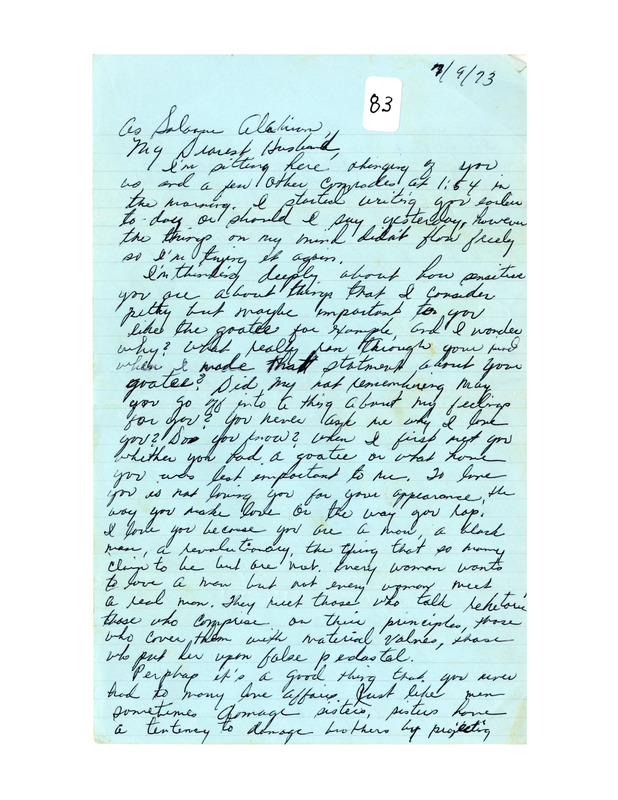 7/9/73
83
As Salaam Alakium,
My Dearest Husband,
I'm sitting here thinking of you
us, and a few other comrades at 1:54 in
the morning. I started writing you earlier
to-day or should I say yesterday, however
the things on my mind didn't flow freely
so I'm trying it again.
I'm thinking deeply about how sensitive
you are about things that I consider
pethy but maybe important to you
like the goatee for example, and I wonder
why? What really ran through your mind
when I made that statment about your
goatee? Did my not remembering may
you go off into a thing about my feelings
for you? You never ask me why I love
you? Do you know? When I first met you
whether you had a goatee or what
you was lest important to me. To love
you is not loving you for your appearance, the
way you make love or the way you rap.
I love you because you are a man, a black
man, a revolutionary, the thing that so many
claim to be but are not. Every woman wants
to love a man but not every woman meet
a real man. They meet those who talk rehtoric
those who comprise on their principles, those
who cover them with material values, those
who put her upon false pedastal.
Perphap it's a good thing that you never
had to many love affairs. Just like men
sometimes damage sisters, sisters have
a tentency to damage brothers by projecting